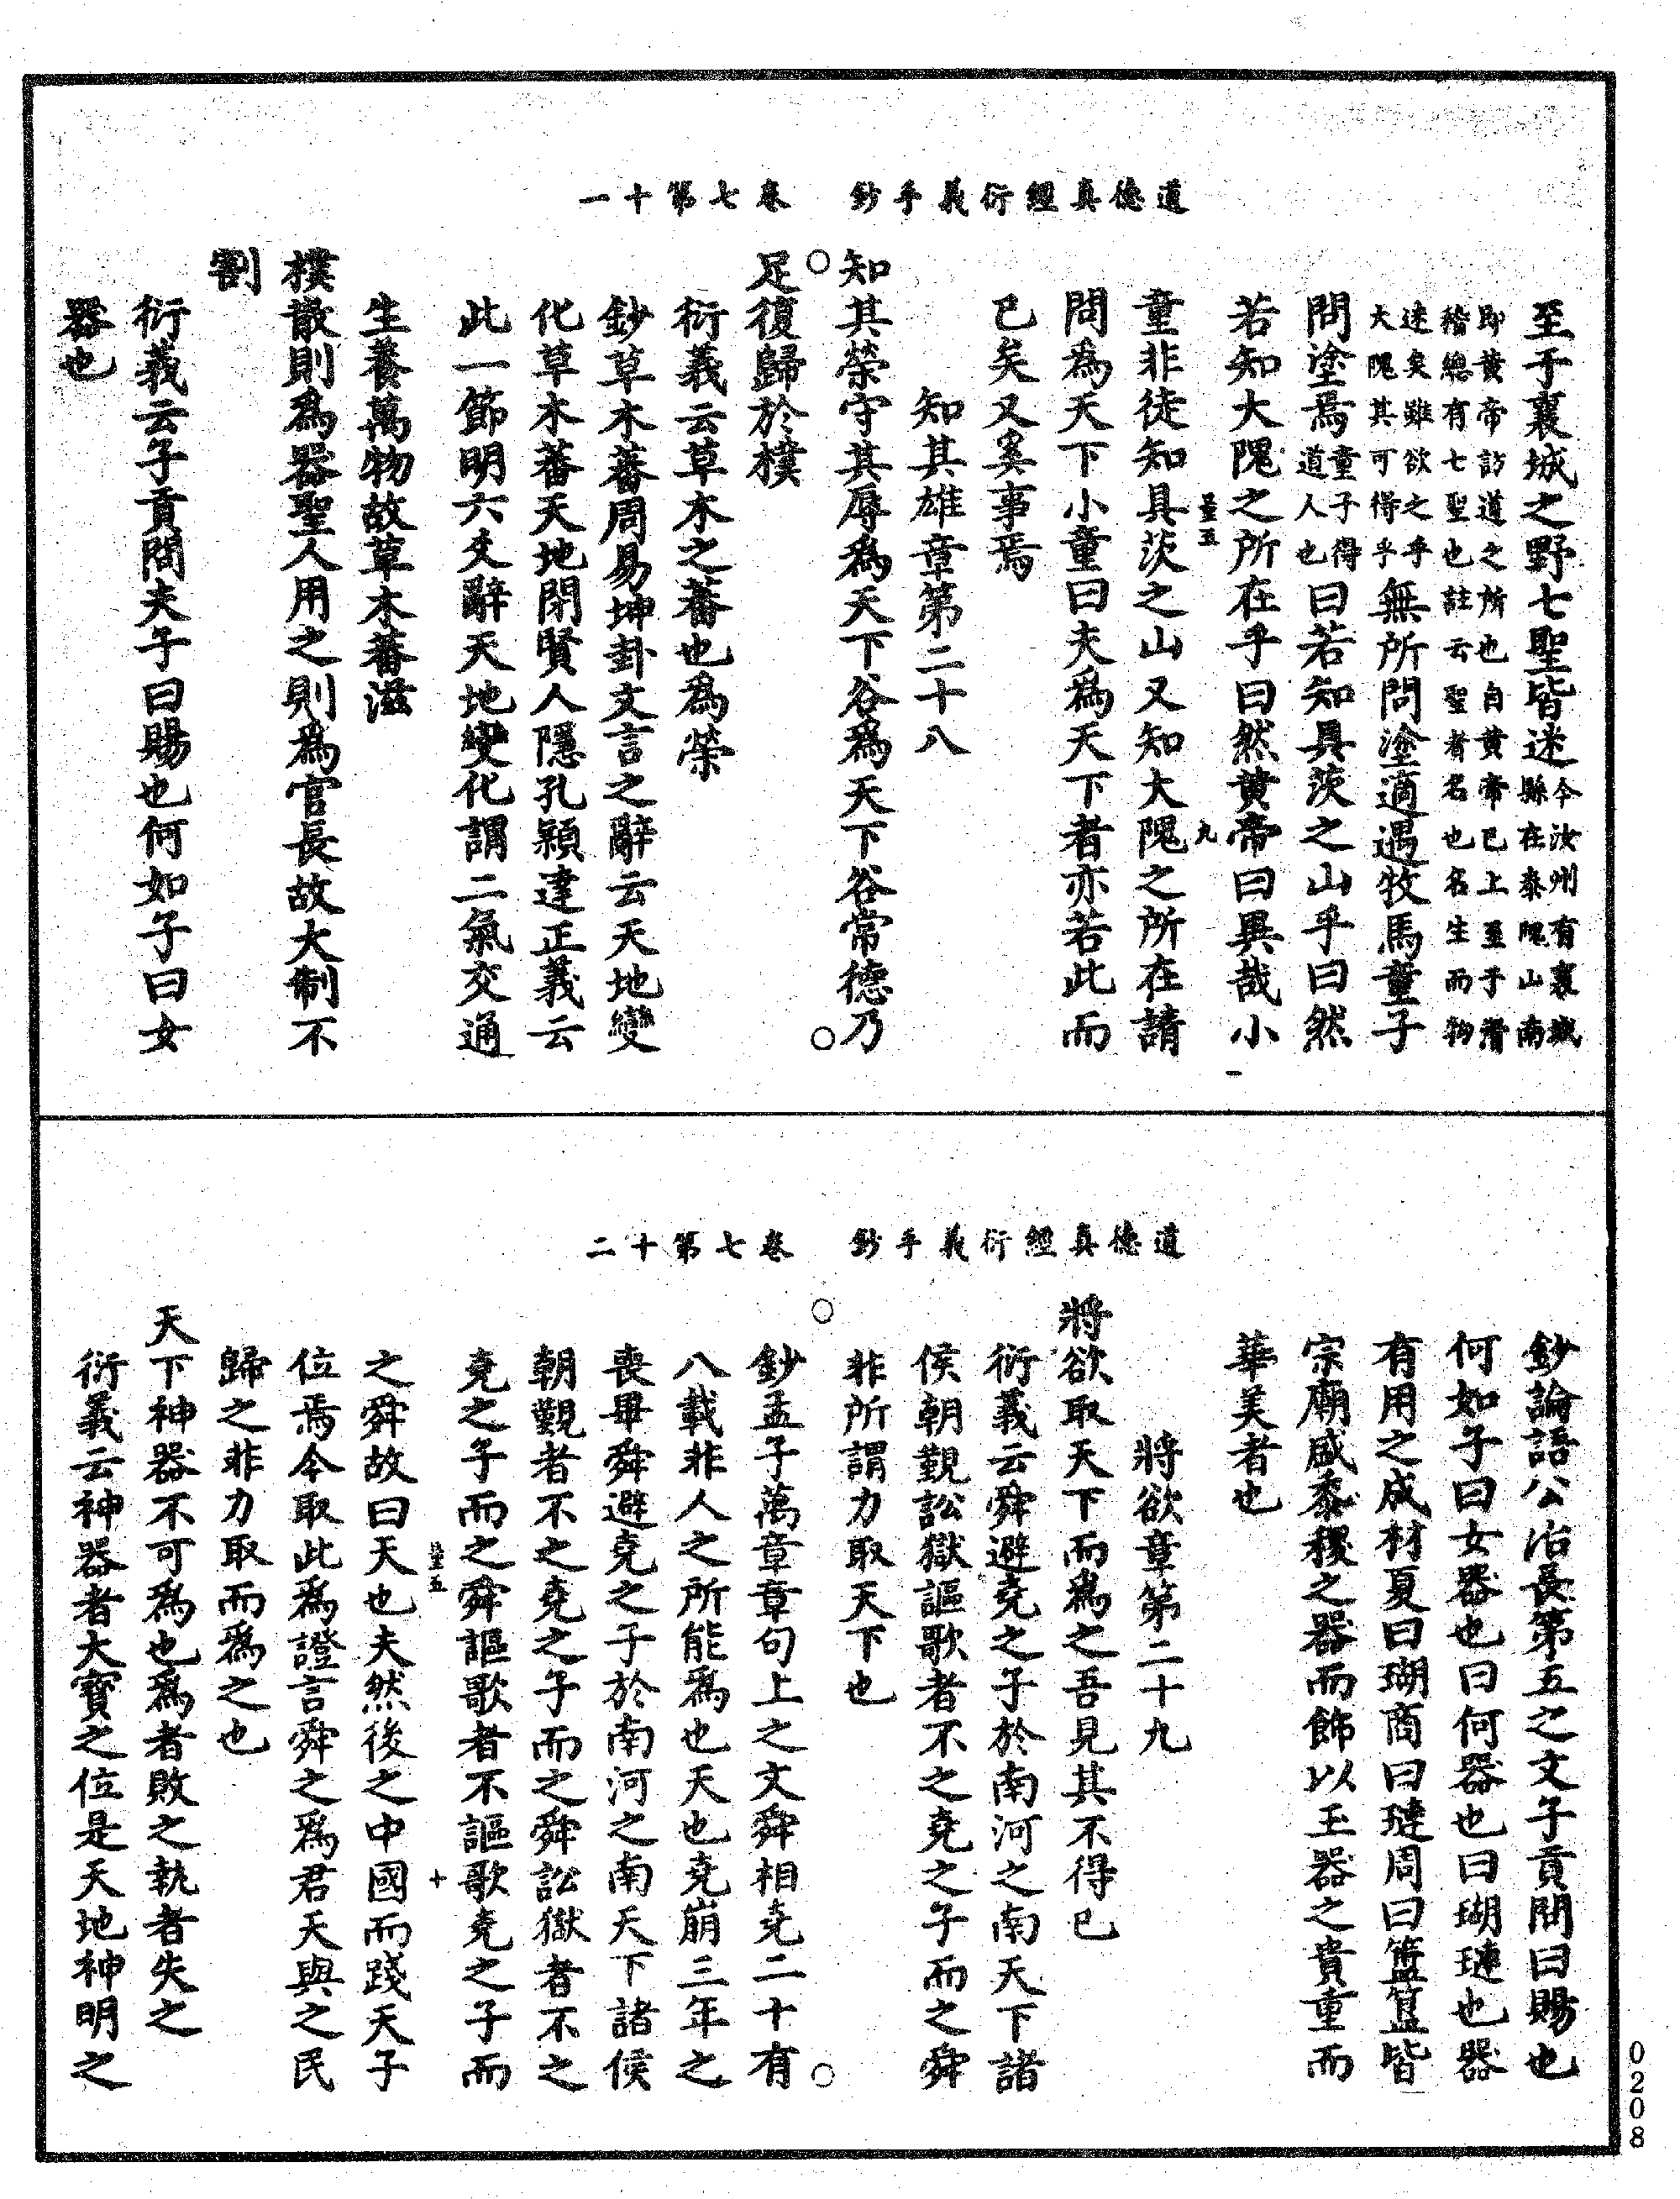 道德真經衍義手鈔　卷七第十一
至于襄城之野七聖皆迷今汝州有襄城縣在泰隗山南
即黃帝訪道之所也自黃帝已上至乎滑稽總有七聖也註云聖者名也名生而物
迷矣雖欲之乎大隗其可得乎無所問塗適遇牧馬童子
問塗焉童子得道人也曰若知具茨之山乎曰然
若知大隗之所在乎曰然黃帝曰異哉小
量五　九
童非徒知具茨之山又知大隗之所在請
問為天下小童曰夫為天下者亦若此而
已矣又奚事焉
知其雄章第二十八
知其榮守其辱為天下谷為天下谷常德乃
足復歸於樸
衍義云草木之蕃也為榮
鈔草木蕃周易坤卦文言之辭云天地變
化草木蕃天地閉賢人隱孔穎達正義云
此一節明六爻辭天地變化謂二氣交通
生養萬物故草木蕃滋
樸散則為器聖人用之則為官長故大制不
割
衍義云子貢問夫子曰賜也何如子曰女
器也
道德真經衍義手鈔　卷七第十二
鈔論語公冶長第五之文子貢問曰賜也
何如子曰女器也曰何器也曰瑚璉也器
有用之成材夏曰瑚商曰璉周曰簠簋皆
宗廟盛黍稷之器而飾以玉器之貴重而
華美者也
將欲章第二十九
將欲取天下而為之吾見其不得已
衍義云舜避堯之子於南河之南天下諸
侯朝覲訟獄謳歌者不之堯之子而之舜
非所謂力取天下也
鈔孟子萬章章句上之文舜相堯二十有
八載非人之所能為也天也堯崩三年之
喪畢舜避堯之子於南河之南天下諸侯
朝覲者不之堯之子而之舜訟獄者不之
堯之子而之舜謳歌者不謳歌堯之子而
量五　十
之舜故曰天也夫然後之中國而踐天子
位焉今取此為證言舜之為君天與之民
歸之非力取而為之也
天下神器不可為也為者敗之執者失之
衍義云神器者大寶之位是天地神明之
0208